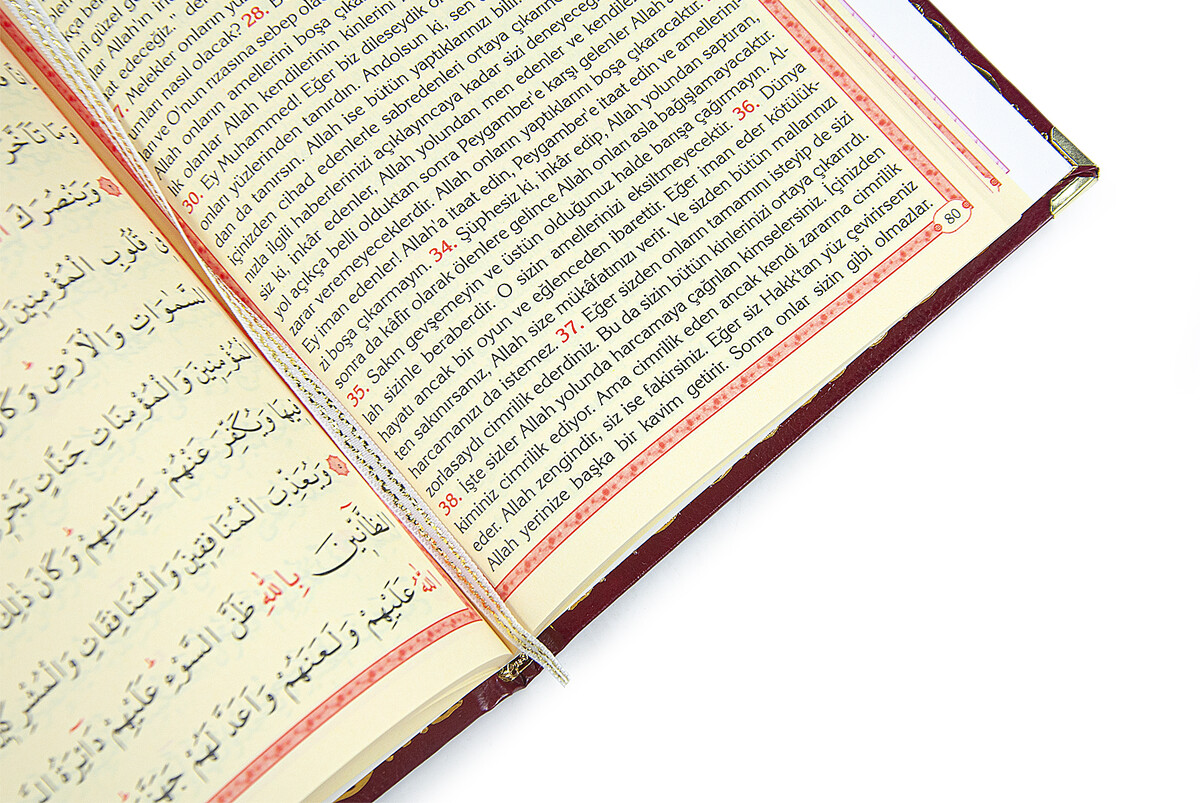 güzel
Allah'ın
edeceğiz.,,
Melekler onların
nasıl olacak? 28.
ve O'nun rızasına sebep
Allah onların amellerini boşa
lik olanlar Allah kendilerinin kinlerini
30. Ey Muhammed! Eğer biz dileseydik
onları yüzlerinden tanırdın. Andolsun ki, sen
dan da tanırsın. Allah ise bütün yaptıklarınızı
içinizden cihad edenlerle sabredenleri ortaya
nızla ilgili haberlerinizi açıklayıncaya kadar sizi
siz ki, inkâr edenler, Allah yolundan men edenler ve
yol açıkça belli olduktan sonra Peygamber'e karşı gelenler
zarar veremeyeceklerdir. Allah onların yaptıklarını boşa çıkaracaktır.
Ey iman edenler! Allah'a itaat edin, Peygamber'e itaat edin ve amellerini-
zi boşa çıkarmayın. 34. Şüphesiz ki, inkâr edip, Allah yolundan saptıran,
sonra da kâfir olarak ölenlere gelince Allah onları asla bağışlamayacaktır.
35. Sakın gevşemeyin ve üstün olduğunuz halde barışa çağırmayın. Al-
lah sizinle beraberdir. O sizin amellerinizi eksiltmeyecektir. 36. Dünya
hayatı ancak bir oyun ve eğlenceden ibarettir. Eğer iman eder kötülük-
ten sakınırsanız, Allah size mükâfatınızı verir. Ve sizden bütün mallarınızı
harcamanızı da istemez. 37. Eğer sizden onların tamamını isteyip de sizi
zorlasaydı cimrilik ederdiniz. Bu da sizin bütün kinlerinizi ortaya çıkarırdı.
38. İşte sizler Allah yolunda harcamaya çağrılan kimselersiniz. İçinizden
kiminiz cimrilik ediyor. Ama cimrilik eden ancak kendi zararına cimrilik
eder. Allah zengindir, siz ise fakirsiniz. Eğer siz Hakk'tan yüz çevirirseniz
Allah yerinize başka bir kavim getirir. Sonra onlar sizin gibi olmazlar.
80
تَاَخَّرَ
وَيَنْصُرَكَ
قُلُوبِ الْمُؤْمِنِينَ
السَّمٰوَاتِ وَالْاَرْضِ
الْمُؤْمِنِينَ وَالْمُؤْمِنَاتِ جَنَّاتٍ
وَيُكَفِّرَ عَنْهُمْ سَيِّئَاتِهِمْ وَكَانَ ذٰلِكَ
وَيُعَذِّبَ الْمُنَافِقِينَ وَالْمُنَافِقَاتِ
الظَّٓانِّينَ بِاللّٰهِ ظَنَّ السَّوْءِ عَلَيْهِمْ دَٓائِرَةُ
اللّٰهُ عَلَيْهِمْ وَلَعَنَهُمْ وَاَعَدَّ لَهُمْ